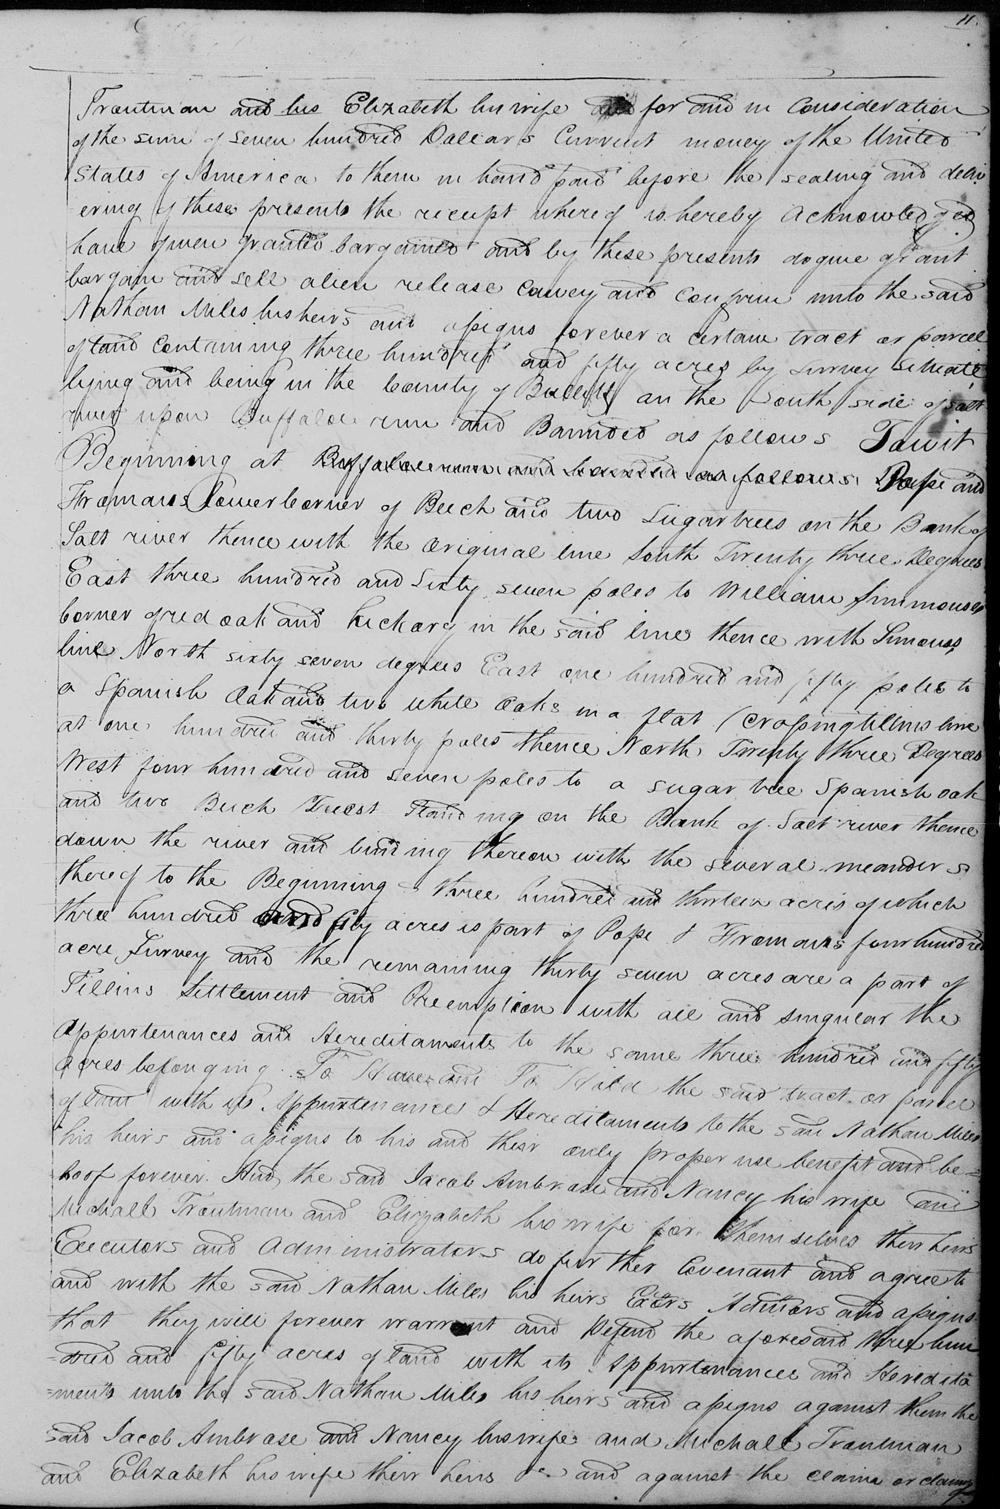 11
Trautman and his Elizabeth his wife for and in Consideration
of the sum of seven hundred Dallars Current money of the United
States of America to them in hand paid before the sealing and deliv
ering of these presents the receipt whereof is hereby acknowledged
have given granted bargained and by these presents do give grant
bargain and sell alien release convey and confirm unto the said
Nathan Miles his heirs and assigns forever a certain tract or parcel
of land Containing three hundred and fifty acres by survey situate
lying and being in the County of Bullitt on the South side of salt
river upon Buffaloe run and Bounded as follows Towit
Beginning at Buffaloe run and bounded as follows Pope and
Fromans lower Corner of Beech and two sugartrees on the Bank of
Salt river thence with the original line South Twenty three Degrees
East three hundred and Sixty seven poles to William Simmonses
Corner of red oak and hickory in the said line thence with Simons
line North sixty seven degrees East one hundred and fifty poles to
a Spanish Oak and two white Oaks in a flat (crossing line
at one hundred and thirty poles thence North Twenty three Degrees
West four hundred and seven poles to a sugar tree Spanish oak
and two Beech Standing on the Bank of Salt river thence
down the river and binding thereon with the several meanders
thereof to the Beginning three hundred and thirteen acres of which
three hundred and fifty acres is part of Pope & Fromans four hundred
acre Survey and the remaining thirty seven acres are a part of
Settlement and Preemption with all and singular the
appurtenances and Hereditaments to the same three hundred and fifty
acres belonging. To Have and To Hold the said tract or parcel
of land with its Appurtenances & Hereditaments to the said Nathan Miles
his heirs and assigns to his and their only proper use benefit and be=
hoof forever. And the said Jacob Ambrose and Nancy his wife and
Michall Trautman and Elizabeth his wife for themselves their heirs
Executors and administrators do further Covenant and agree to
and with the said Nathan Miles his heirs Exors and assigns
that they will forever warrant and Defend the aforesaid three hun
=dred and fifty acres of land with its Appurtenances and Heredita
=ments unto the said Nathan Miles his heirs and assigns against them the
said Jacob Ambrase and Nancy his wife and Michall Trautman
and Elizabeth his wife their heirs &c and against the claim or claims
of